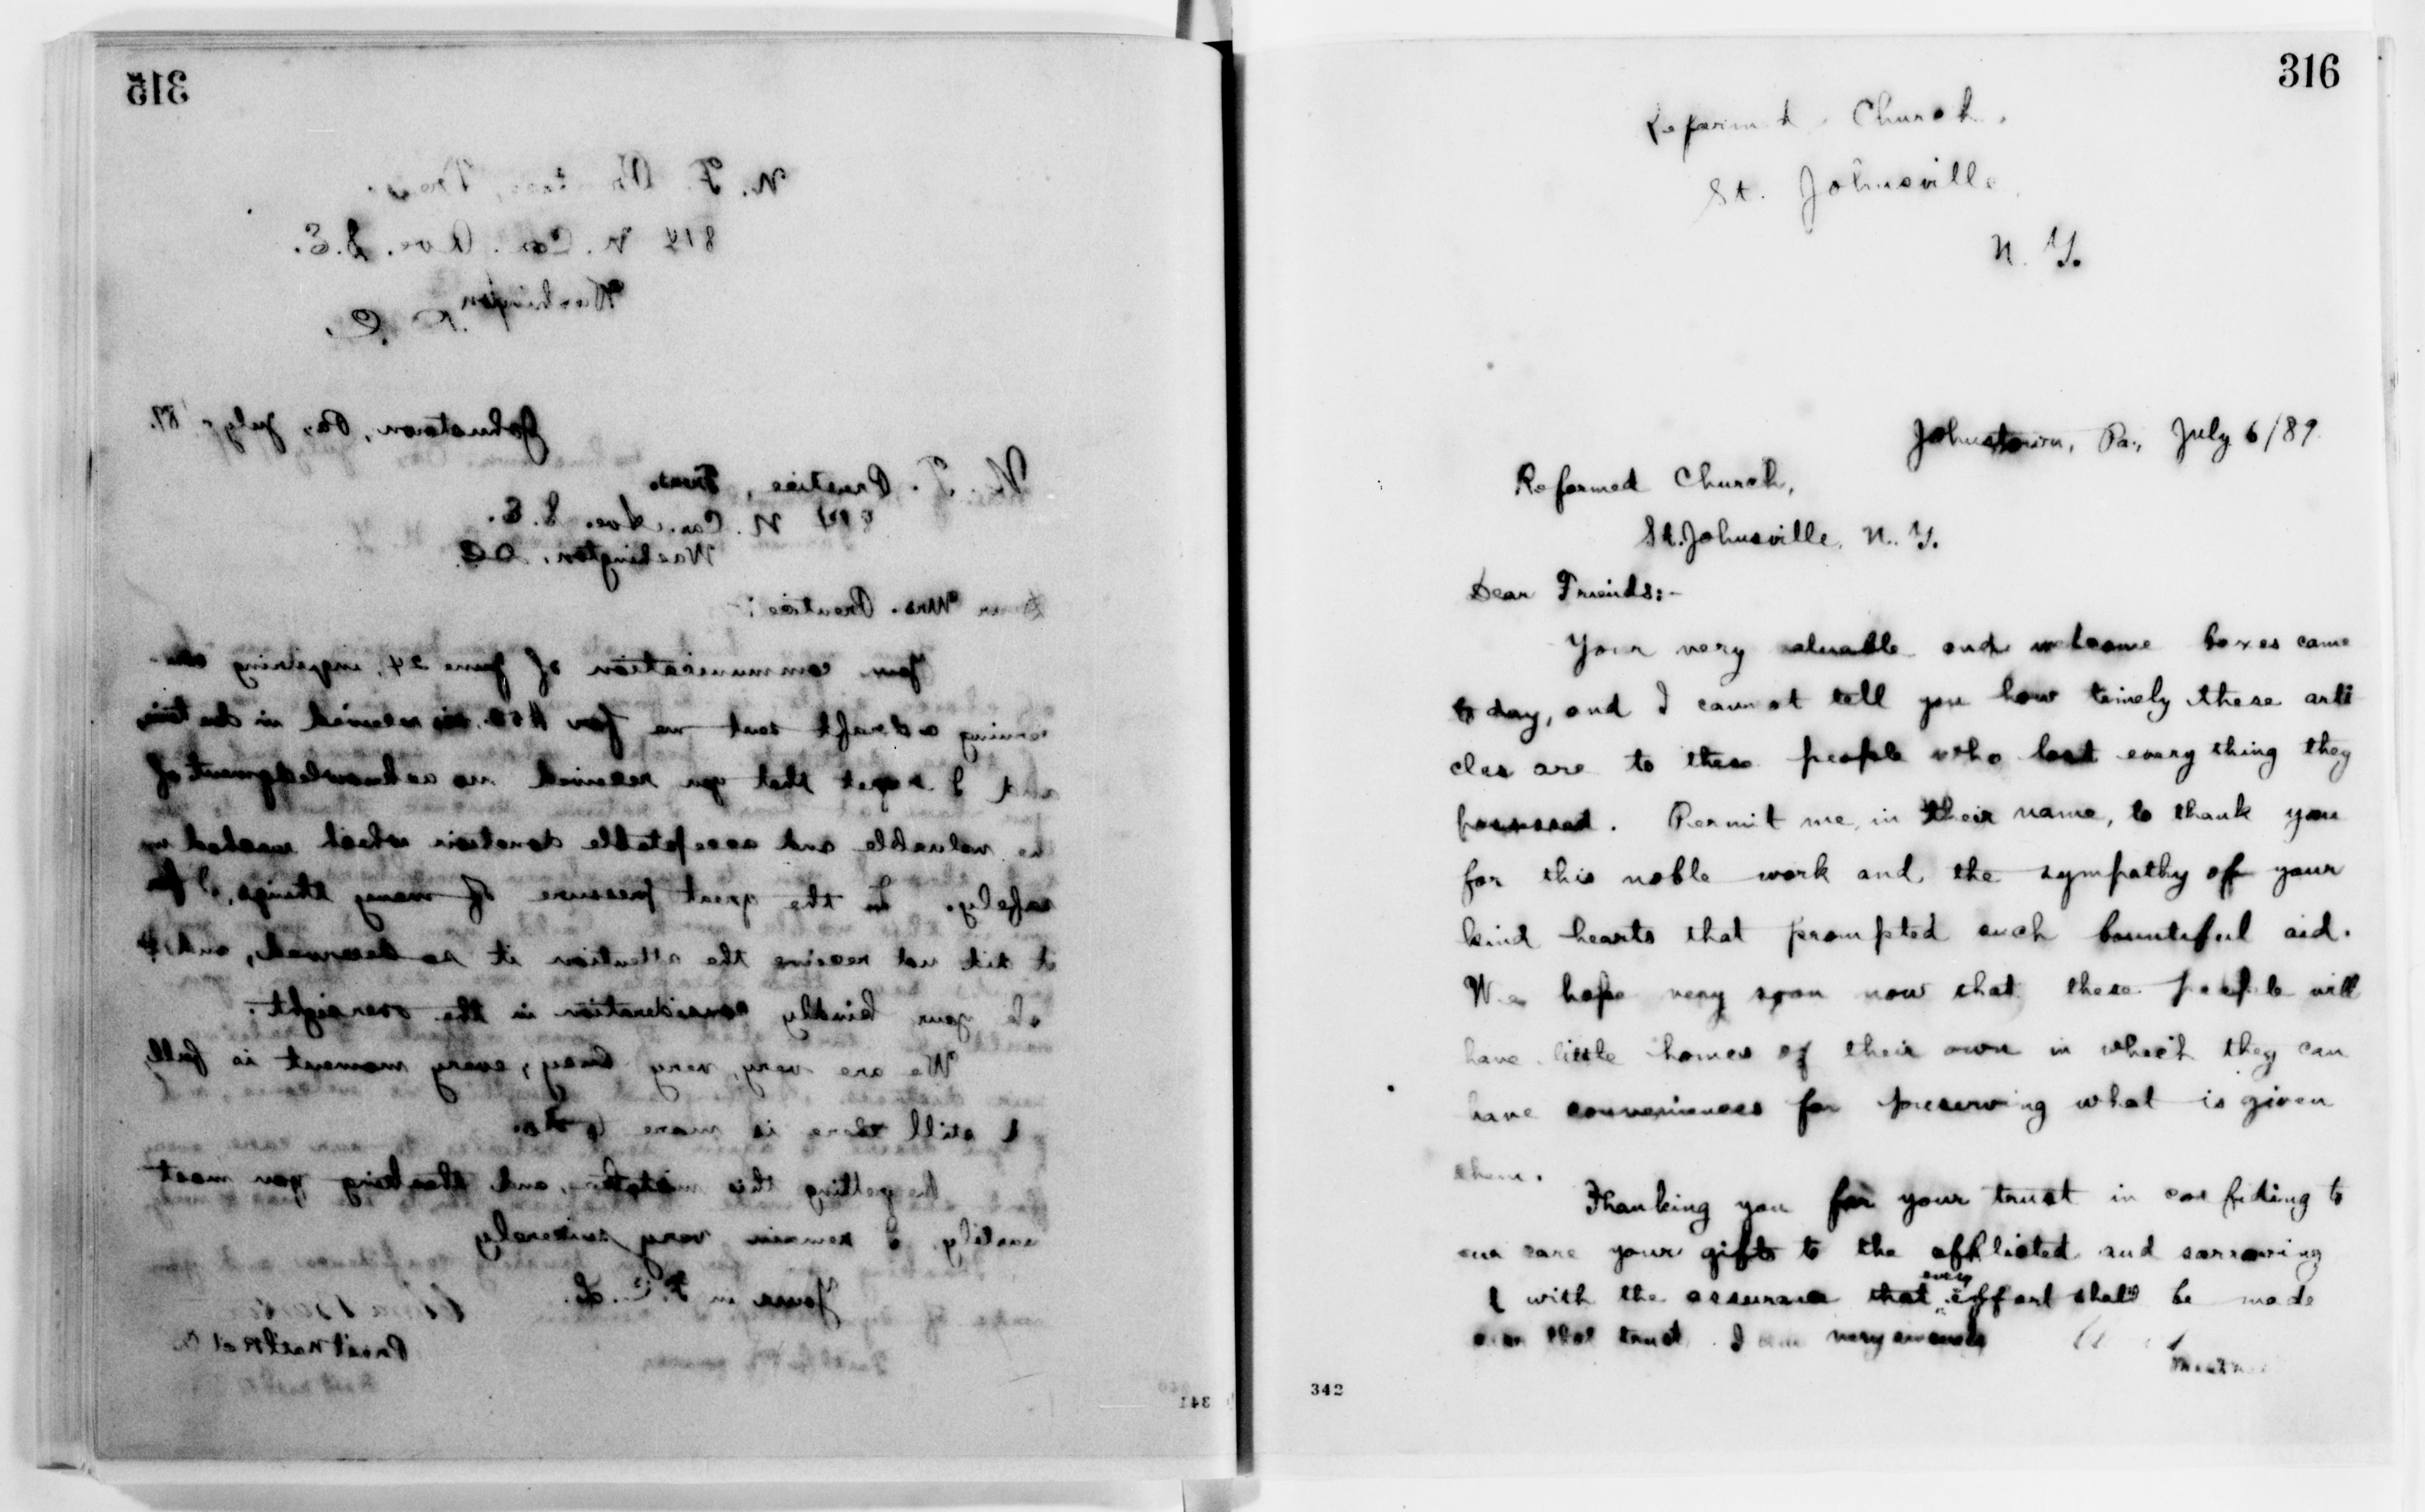 315
N. T.
814 N. Car. Ave. S.E.
Washington
D. C.
Johnstown, Pa, July '89.
N. T. Prentice, Treas.
814 N. Car. Ave. S. E.
Washington, D.C.
Dear Mrs. Prentice:-
Your communication of June 24, inquiring con-
cerning a draft sent me for $50. is received in due time,
and I regret that you received no acknowledgment of
the valuable and acceptable donation which reached us
safely. In the great pressure of many things,
it did not receive the attention it so deserved, and
your kindly consideration in the oversight.
We are very, very, very busy, every moment is full
& still there is more to do.
Regretting this mistake, and thanking you most
heartily, I remain very sincerely
Yours in F. C. L.
Clara Barton
Prest Natl Red C.
341
316
Reformed Church,
St. Johnsville,
N. Y.
Johnstown, Pa, July 6/89.
Reformed Church,
St. Johnsville, N. Y.
Dear Friends:-
Your very valuable and welcome boxes came
to day, and I cannot tell you how timely these arti
cles are to these people who lost every thing they
possessed. Permit me, in their name, to thank you
for this noble work and the sympathy of your
kind hearts that prompted such bountiful aid.
We hope very soon now that these people will
have little homes of their own in which they can
have conveniences for preserving what is given
them.
Thanking you for your trust in confiding to
our care your gifts to the afflicted and sorrowing
& with the assurance that every effort shall be made
that trust. I am very sincerely
342